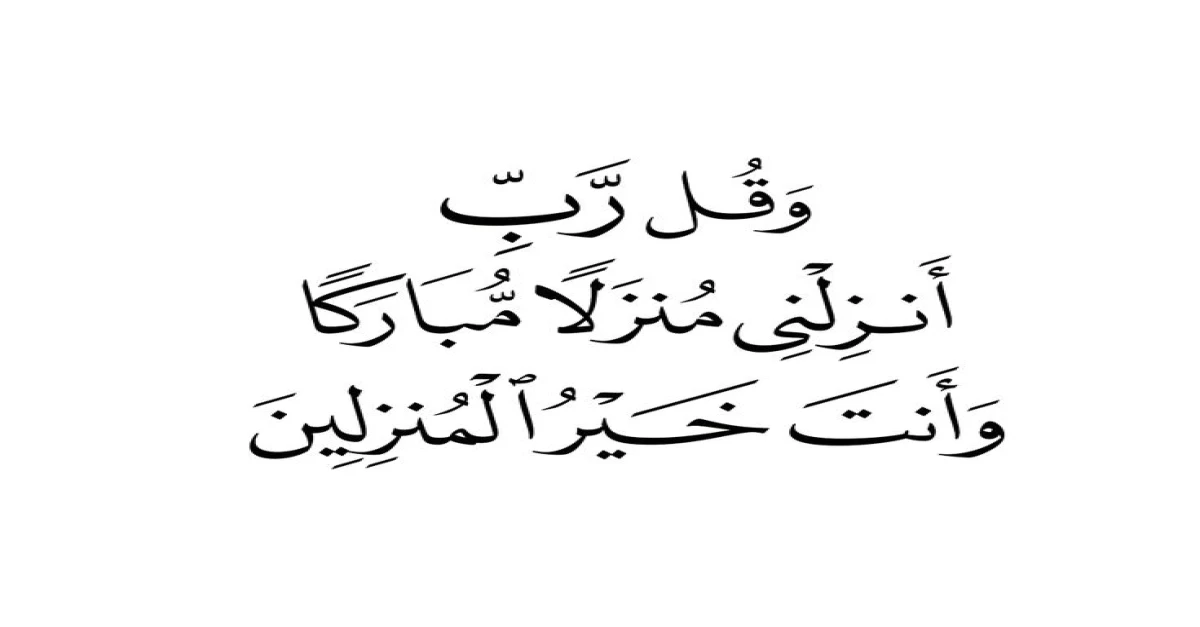 وَقُل رَّبِّ
أَنزِلْنِى مُنزَلًا مُّبَارَكًا
وَأَنتَ خَيْرُ ٱلْمُنزِلِينَ